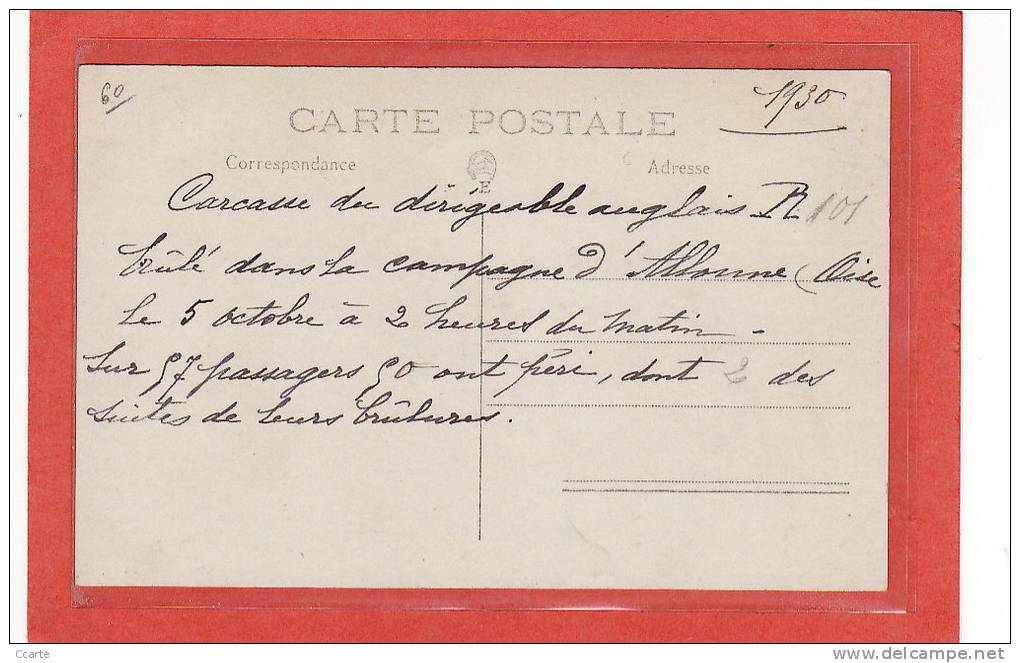 60/
1930
CARTE POSTALE
Correspondance
Adresse
E
Carcasse du dirigeable anglais R 101
brûlé dans la campagne d'Allonne (Oise
le 5 octobre à 2 heures du matin -
Sur 57 passagers 50 ont péri, dont 2 des
suites de leurs brûlures.
Ccarte
www.delcampe.net